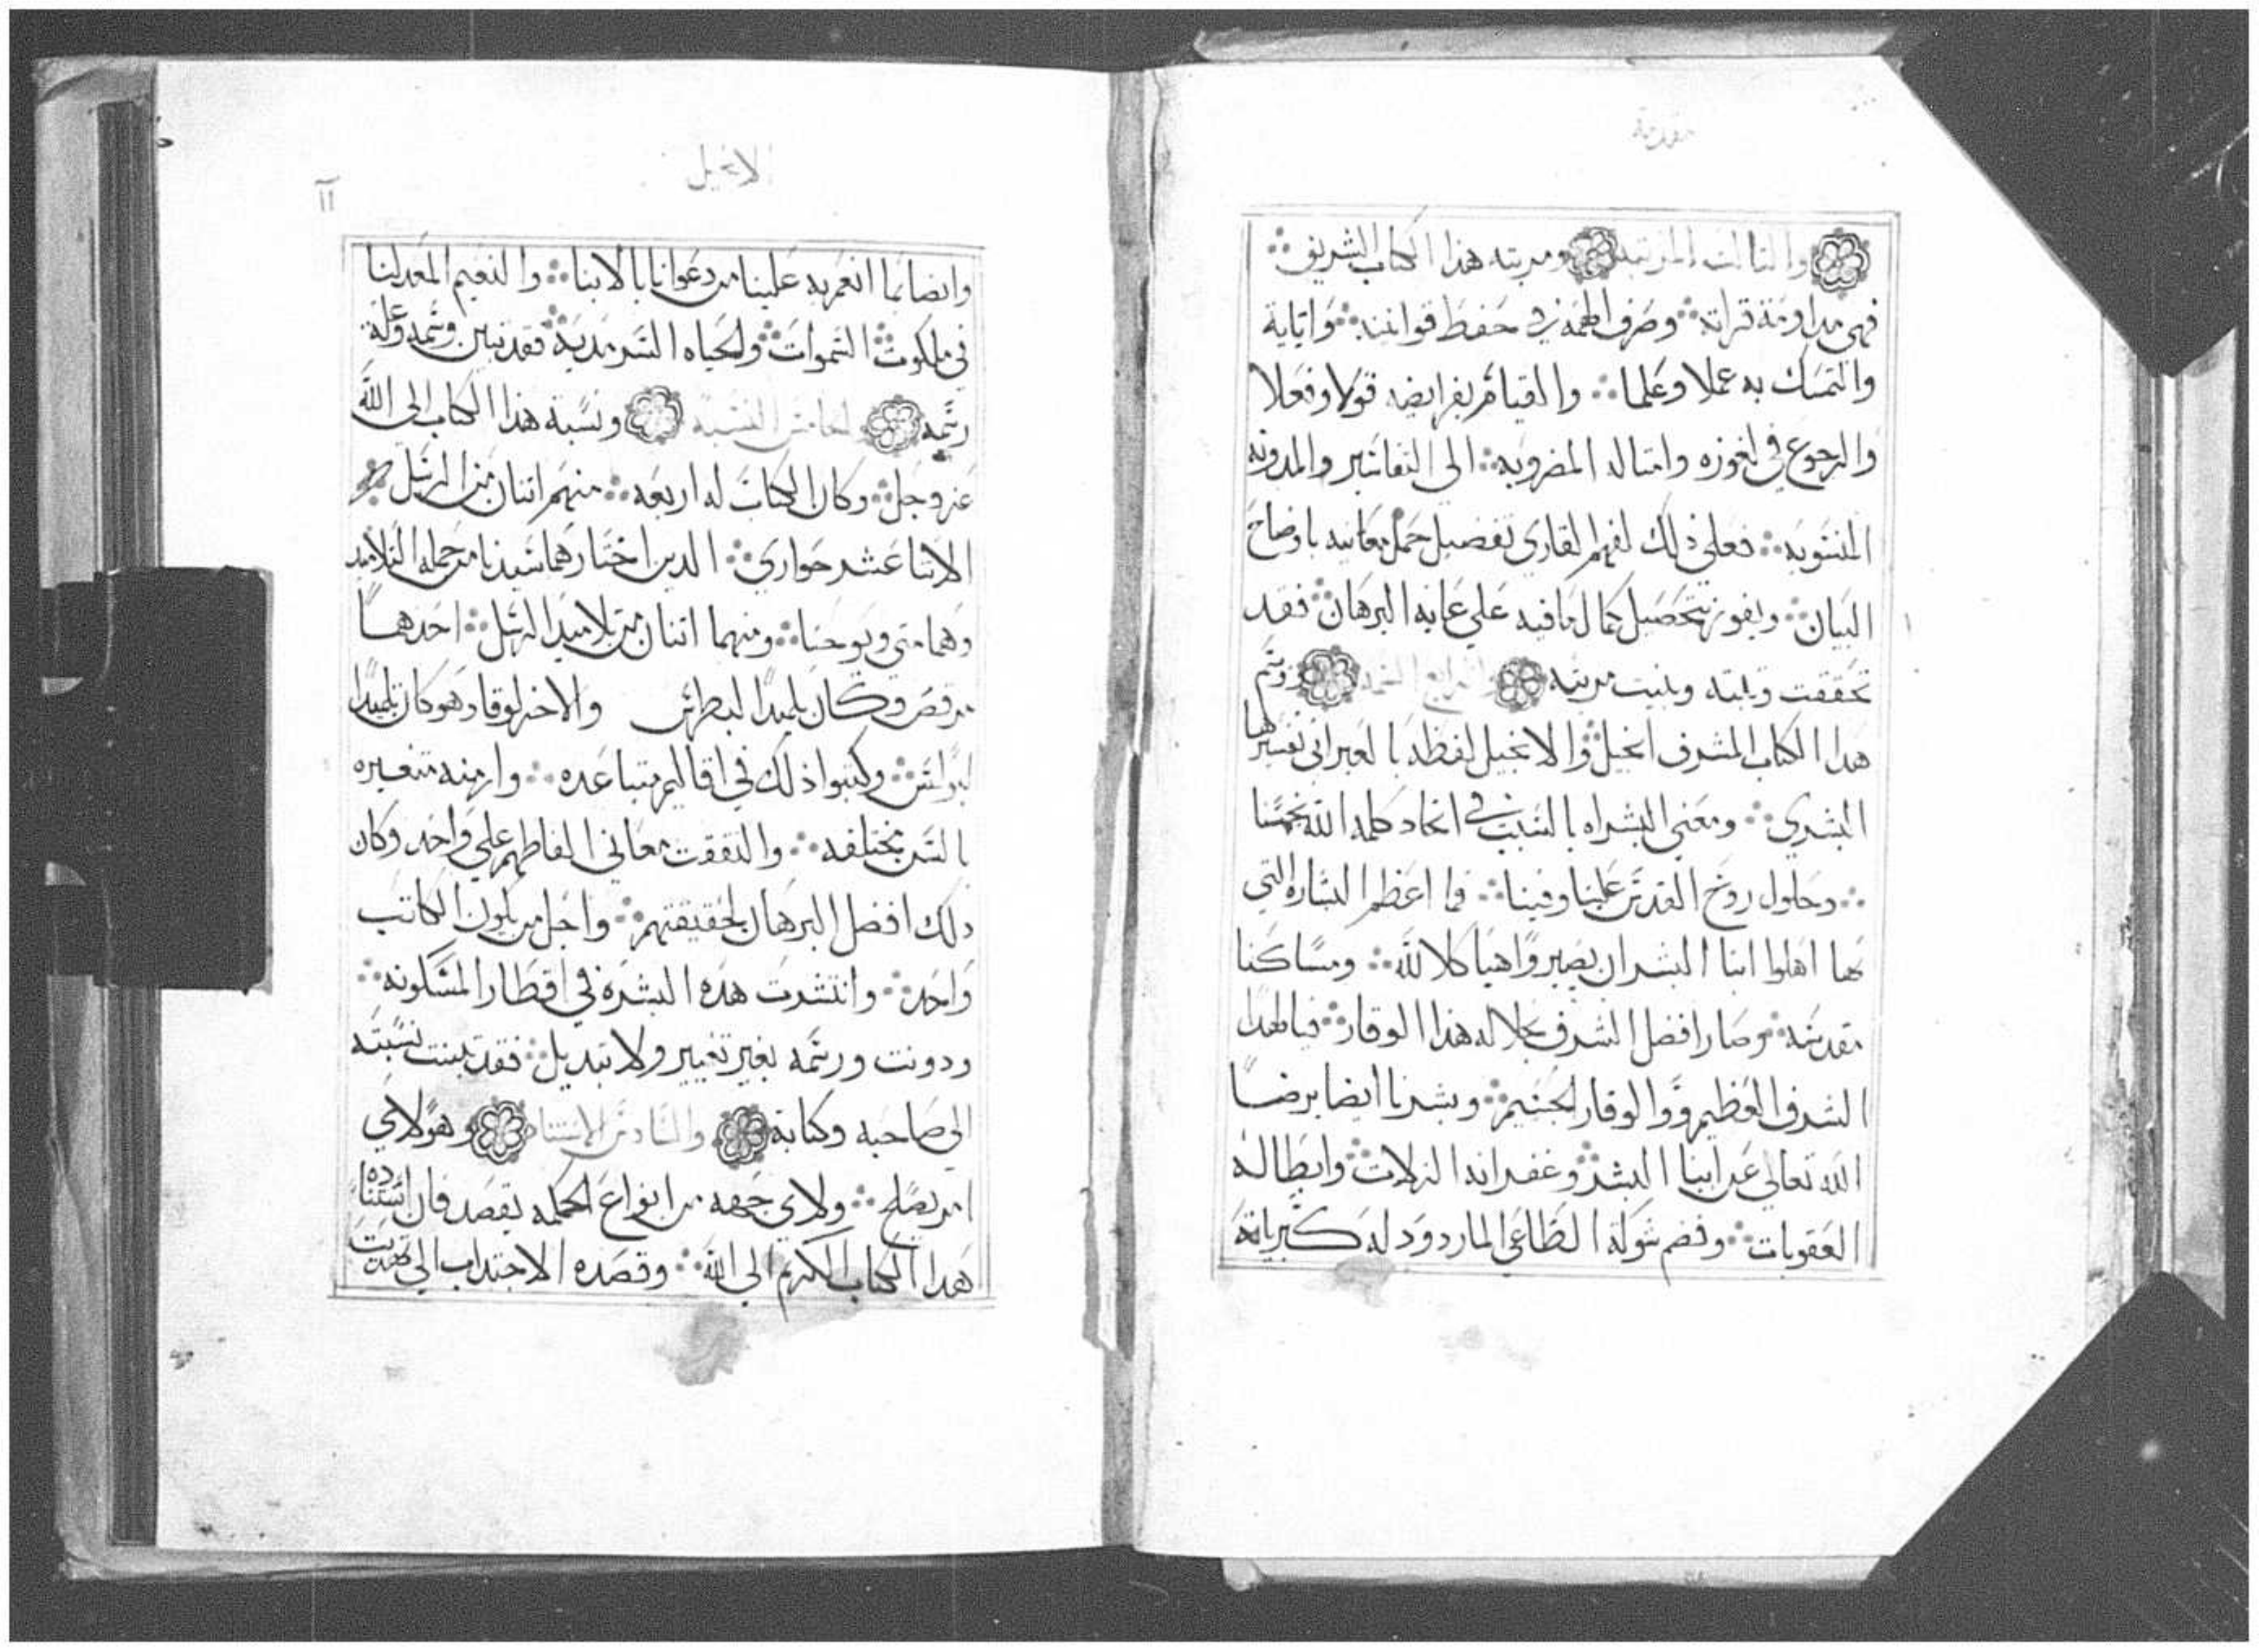 مقدمة
والثالث المرتبه ومرتبه هذا الكتاب الشريف
فهى مداومة قراته وصرف الهمه في حفظ قوانينه واتايه
والتمسك به عملا وعلما والقيام بفرايضه قولا وفعلا
والرجوع في لغوزه وامتاله المضروبه الى التفاسير والمدونه
المنسوبه فعلى ذلك لفهم القاري تفصيل جمل معانيه باوضاح
البيان ويفوز بتحصيل كمال مافيه على غايه البرهان فقد
تحققت وبينت مرتبته والرابع
هدا الكتاب المشرف انجيل والانجيل لفظه بالعبراني تفسيرها
البشري ومعني البشراه بالسبب في اتحاد كلمه الله بجسمنا
وحلول روح القدس علينا وفينا فما اعظم البشاره التي
بها اهلوا ابنا البشر ان يصيروا هياكلا لله ومساكنا
مقدسه وصار افضل الشرف بجلاله هذا الوقار فيالهدا
الشرف العظيم والوقار الجسيم وبشرنا ايضا برضا
الله تعالى عن ابنا البشر وغفرانه الزلات وابطاله
العقوبات وفضم شوكة الطاغى المارد ودله كبريائه
الانجيل
١١
وايضا بما انعم به علينا من دعوانا بالابنا والنعيم المعد لنا
في ملكوت السموات والحياه السرمديه فقد تبين وسمه وعلة
رسمه الخامس النسبة ونسبة هذا الكتاب الى الله
عز وجل وكان الكتاب له اربعه منهم اتنان من الرسل
الاتنا عشر حواري الدين اختارهما سيدنا من جمله التلاميد
وهما متى ويوحنا ومنهما اتنان من تلاميد الرسل احدهما
مرقص وكان تلميدا لبطرس والاخر لوقا وهو كان تلميدا
لبولس وكتبوا ذلك في اقاليم متباعده وازمنه متغيره
بالسن مختلفه والتفقت معاني الفاظهم على واحد وكان
دلك افضل البرهان لحقيقتهم واجل من يكون الكاتب
واحد وانتشرت هده البشره في اقطار المسكونه
ودونت ورسمه بغير تغيير ولا تبديل فقد بينت نسبته
الى صاحبه وكتابة والسادس الاستناد وهو لاي
امر يصلح ولاي جهه من انواع الحكمه يقصد فان استناده
هدا الكتاب الكريم الى الله وقصده الاجتداب الى تهديب